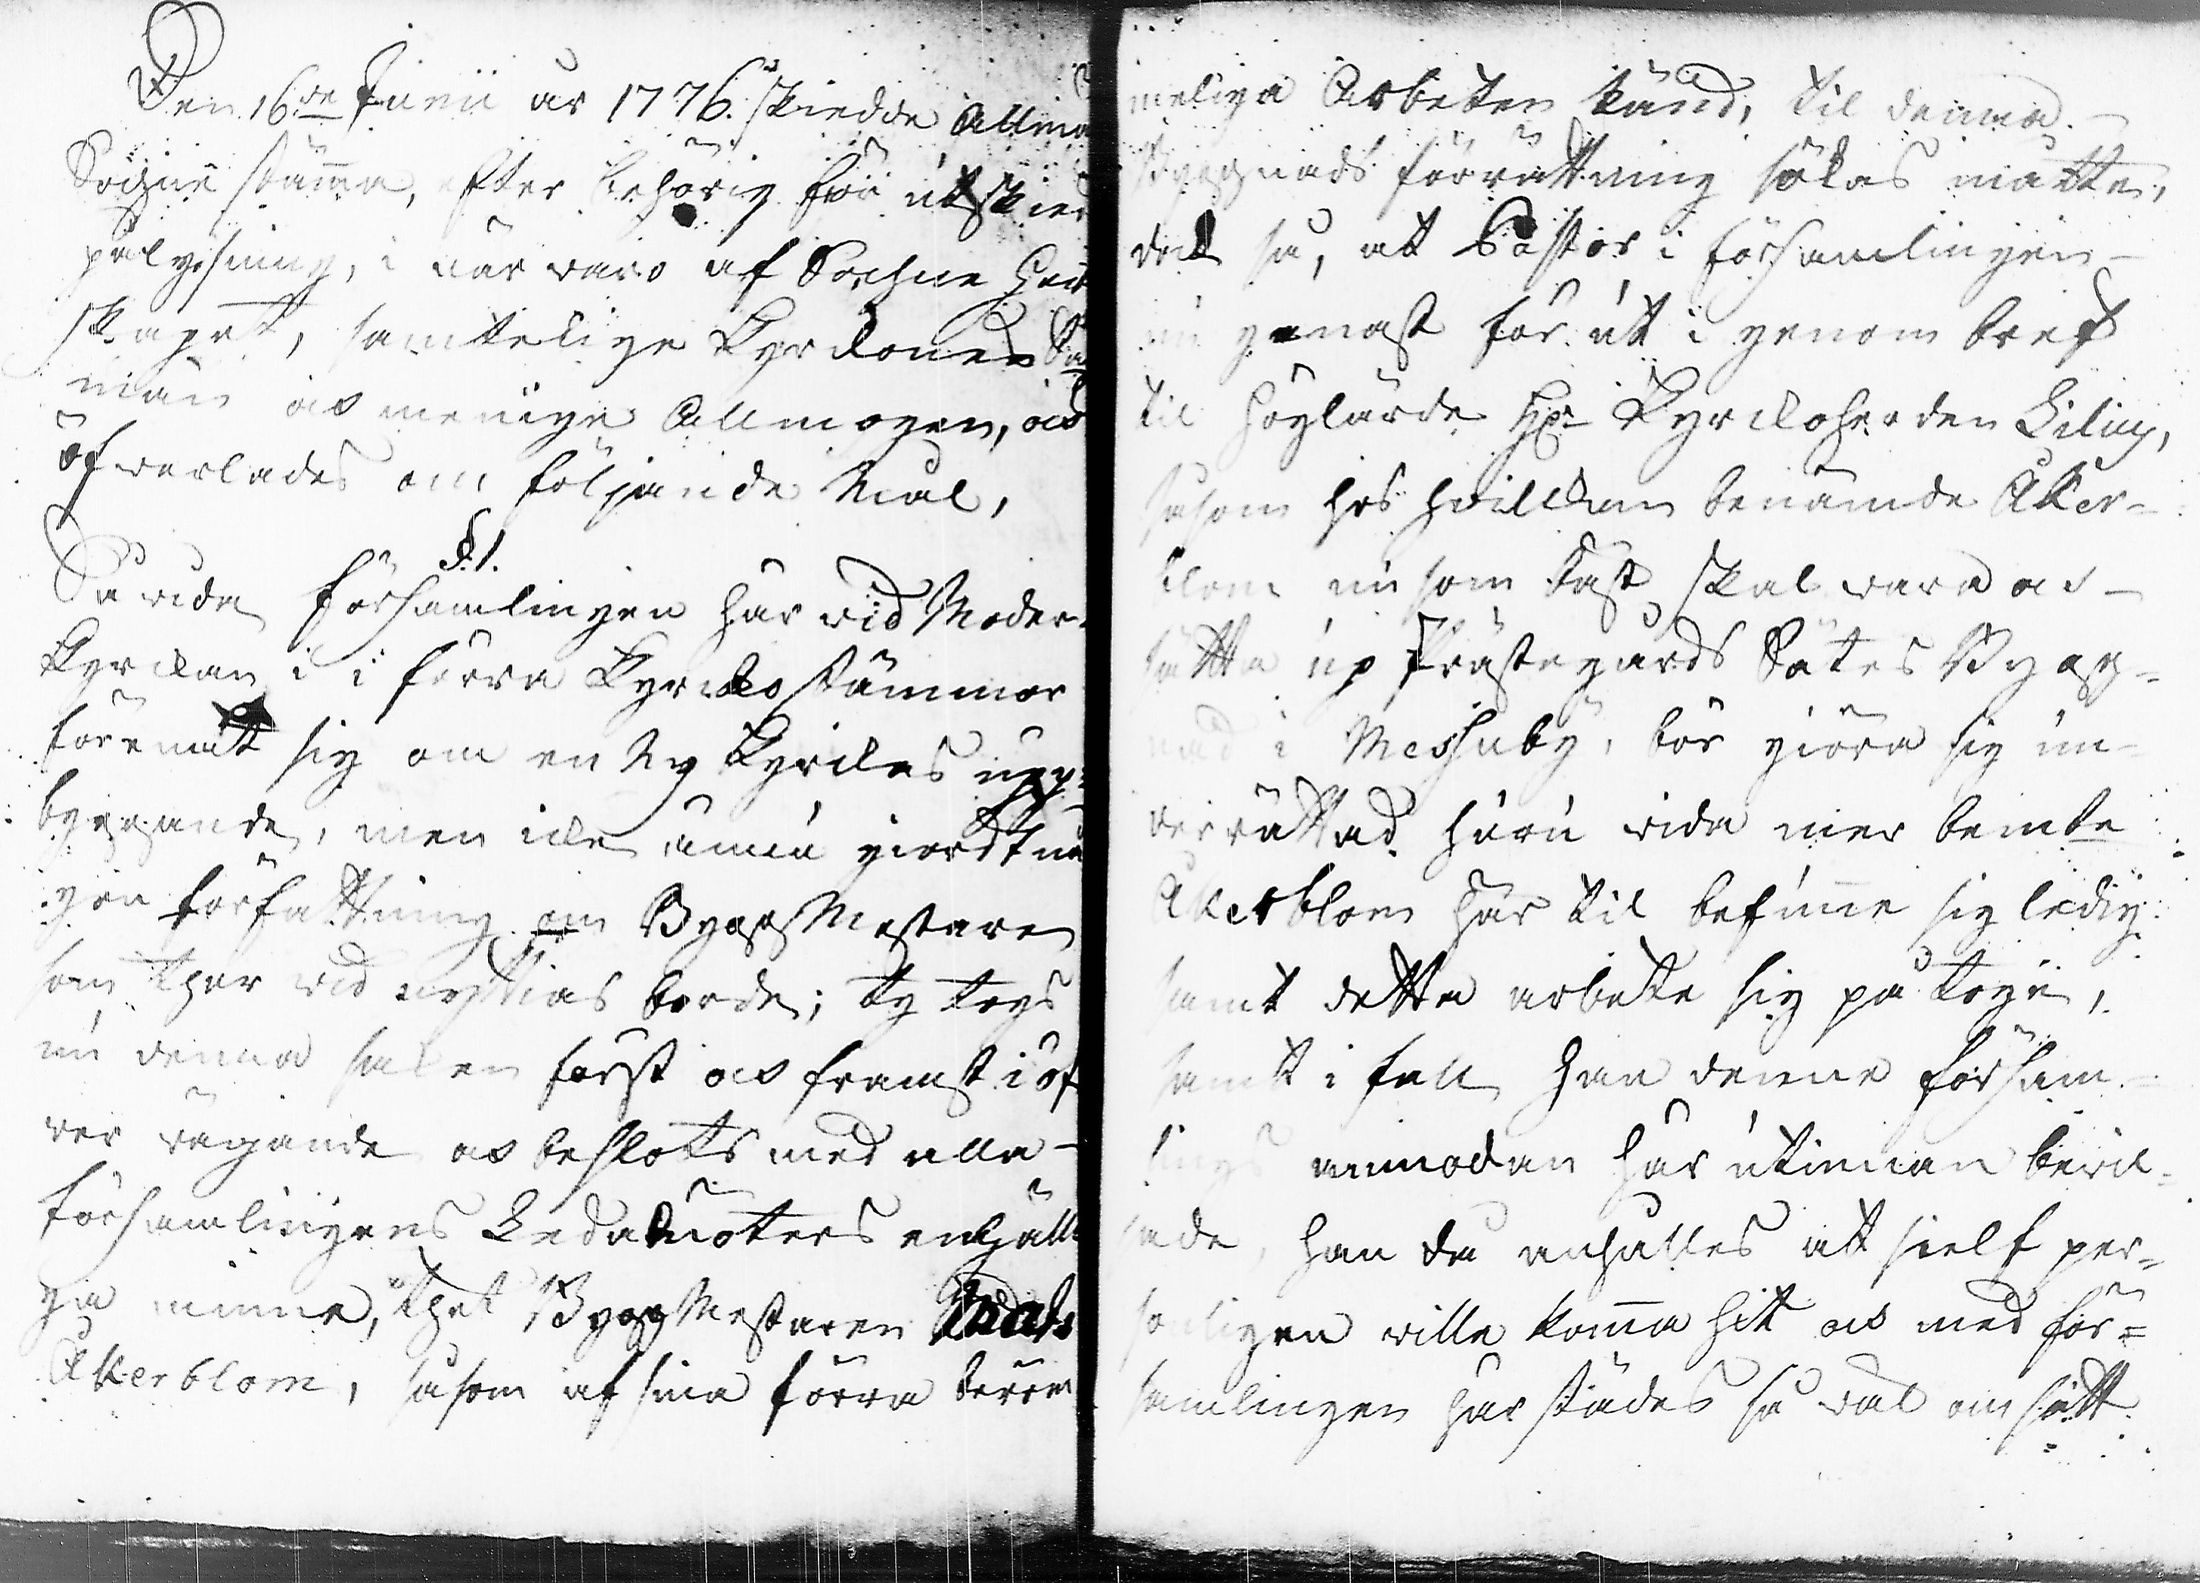 Den 16de Junii år 1776. skiedde Allmä
Sogne stämma, efter behörig för ut skied
pålysning, i när waro af Sochne Her
skapet, samtelige Kyrckones Sex
män och menige Allmogen, och
öfwerlades om följande Mål,
§. 1.
Så vida församlingen här wid Moder-
Kyrckan i i förra Kyrcko stämmor
förenat sig om en Ny Kyrckas upp-
byggande, men icke ännu giordt nå
gon författning om ByggMästaren
som ther wid nyttias borde; Ty togs
nu denna saken först och främst i öf
ver vägande och beslöts med alla
församlingens Ledamöters enhälli
ga minne, thet ByggMästaren Mats
Åkerblom, såsom af sina förra beröm
meliga Arbeten känd, til denna
Byggnads förrättning sökas måtte,
dock så, at Pastor i församlingen
nu genast för ut i genom bref
til Höglärde Hr Kyrckoherden Liling,
såsom hos hvilcken benämde Åker-
blom nu som bäst skal wara at
sätta up Prästegårds Sätes Bygg-
nad i Messuby, bör giöra sig un-
derrättad huru vida mer bemte
Åkerblom här til befinne sig ledig
samt detta arbete sig påtoge,
samt i fall han denne försam-
lings anmodan här utinnan bevil-
jade, han då anhålles att sielf per-
sonligen wille komma hit och med för-
samlingen här städes så väl om sätt